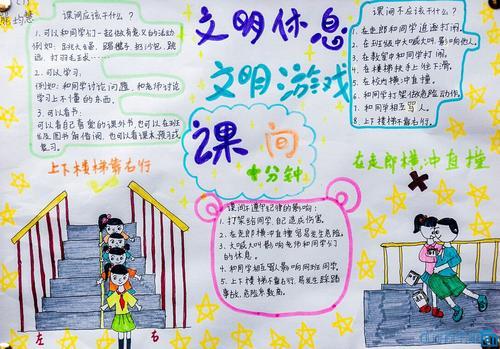 课间应该干什么？
1. 可以和同学们一起做有意义的活动
例如：跳大绳、踢毽子、扔沙包、跳
远、打羽毛球……
2. 可以学习。
例如：和同学讨论问题，和老师讨论
学习上不懂的东西。
3. 可以看书：
可以看自己喜爱的课外书，也可以在班
复习。
上下楼梯靠右行
左
右
文明休息
文明游戏
课间
十分钟
课间不遵守纪律的影响：
1. 打架给同学、自己造成伤害。
2. 在走廊横冲直撞容易发生危险。
3. 大喊大叫影响老师和同学们
的休息。
4. 和同学相互骂人影响同班同学。
5. 上下楼梯不靠右行，易发生踩踏
事故，危险系数高。
课间不应该干什么？
1. 在走廊和同学追逐打闹。
2. 在班级中大喊大叫，影响他人。
3. 在教室中和同学打闹。
4. 在楼梯扶手上往下滑。
5. 在校内横冲直撞。
6. 和同学打架做危险动作。
7. 和同学相互骂人。
8. 上下楼梯不靠右行。
在走廊横冲直撞